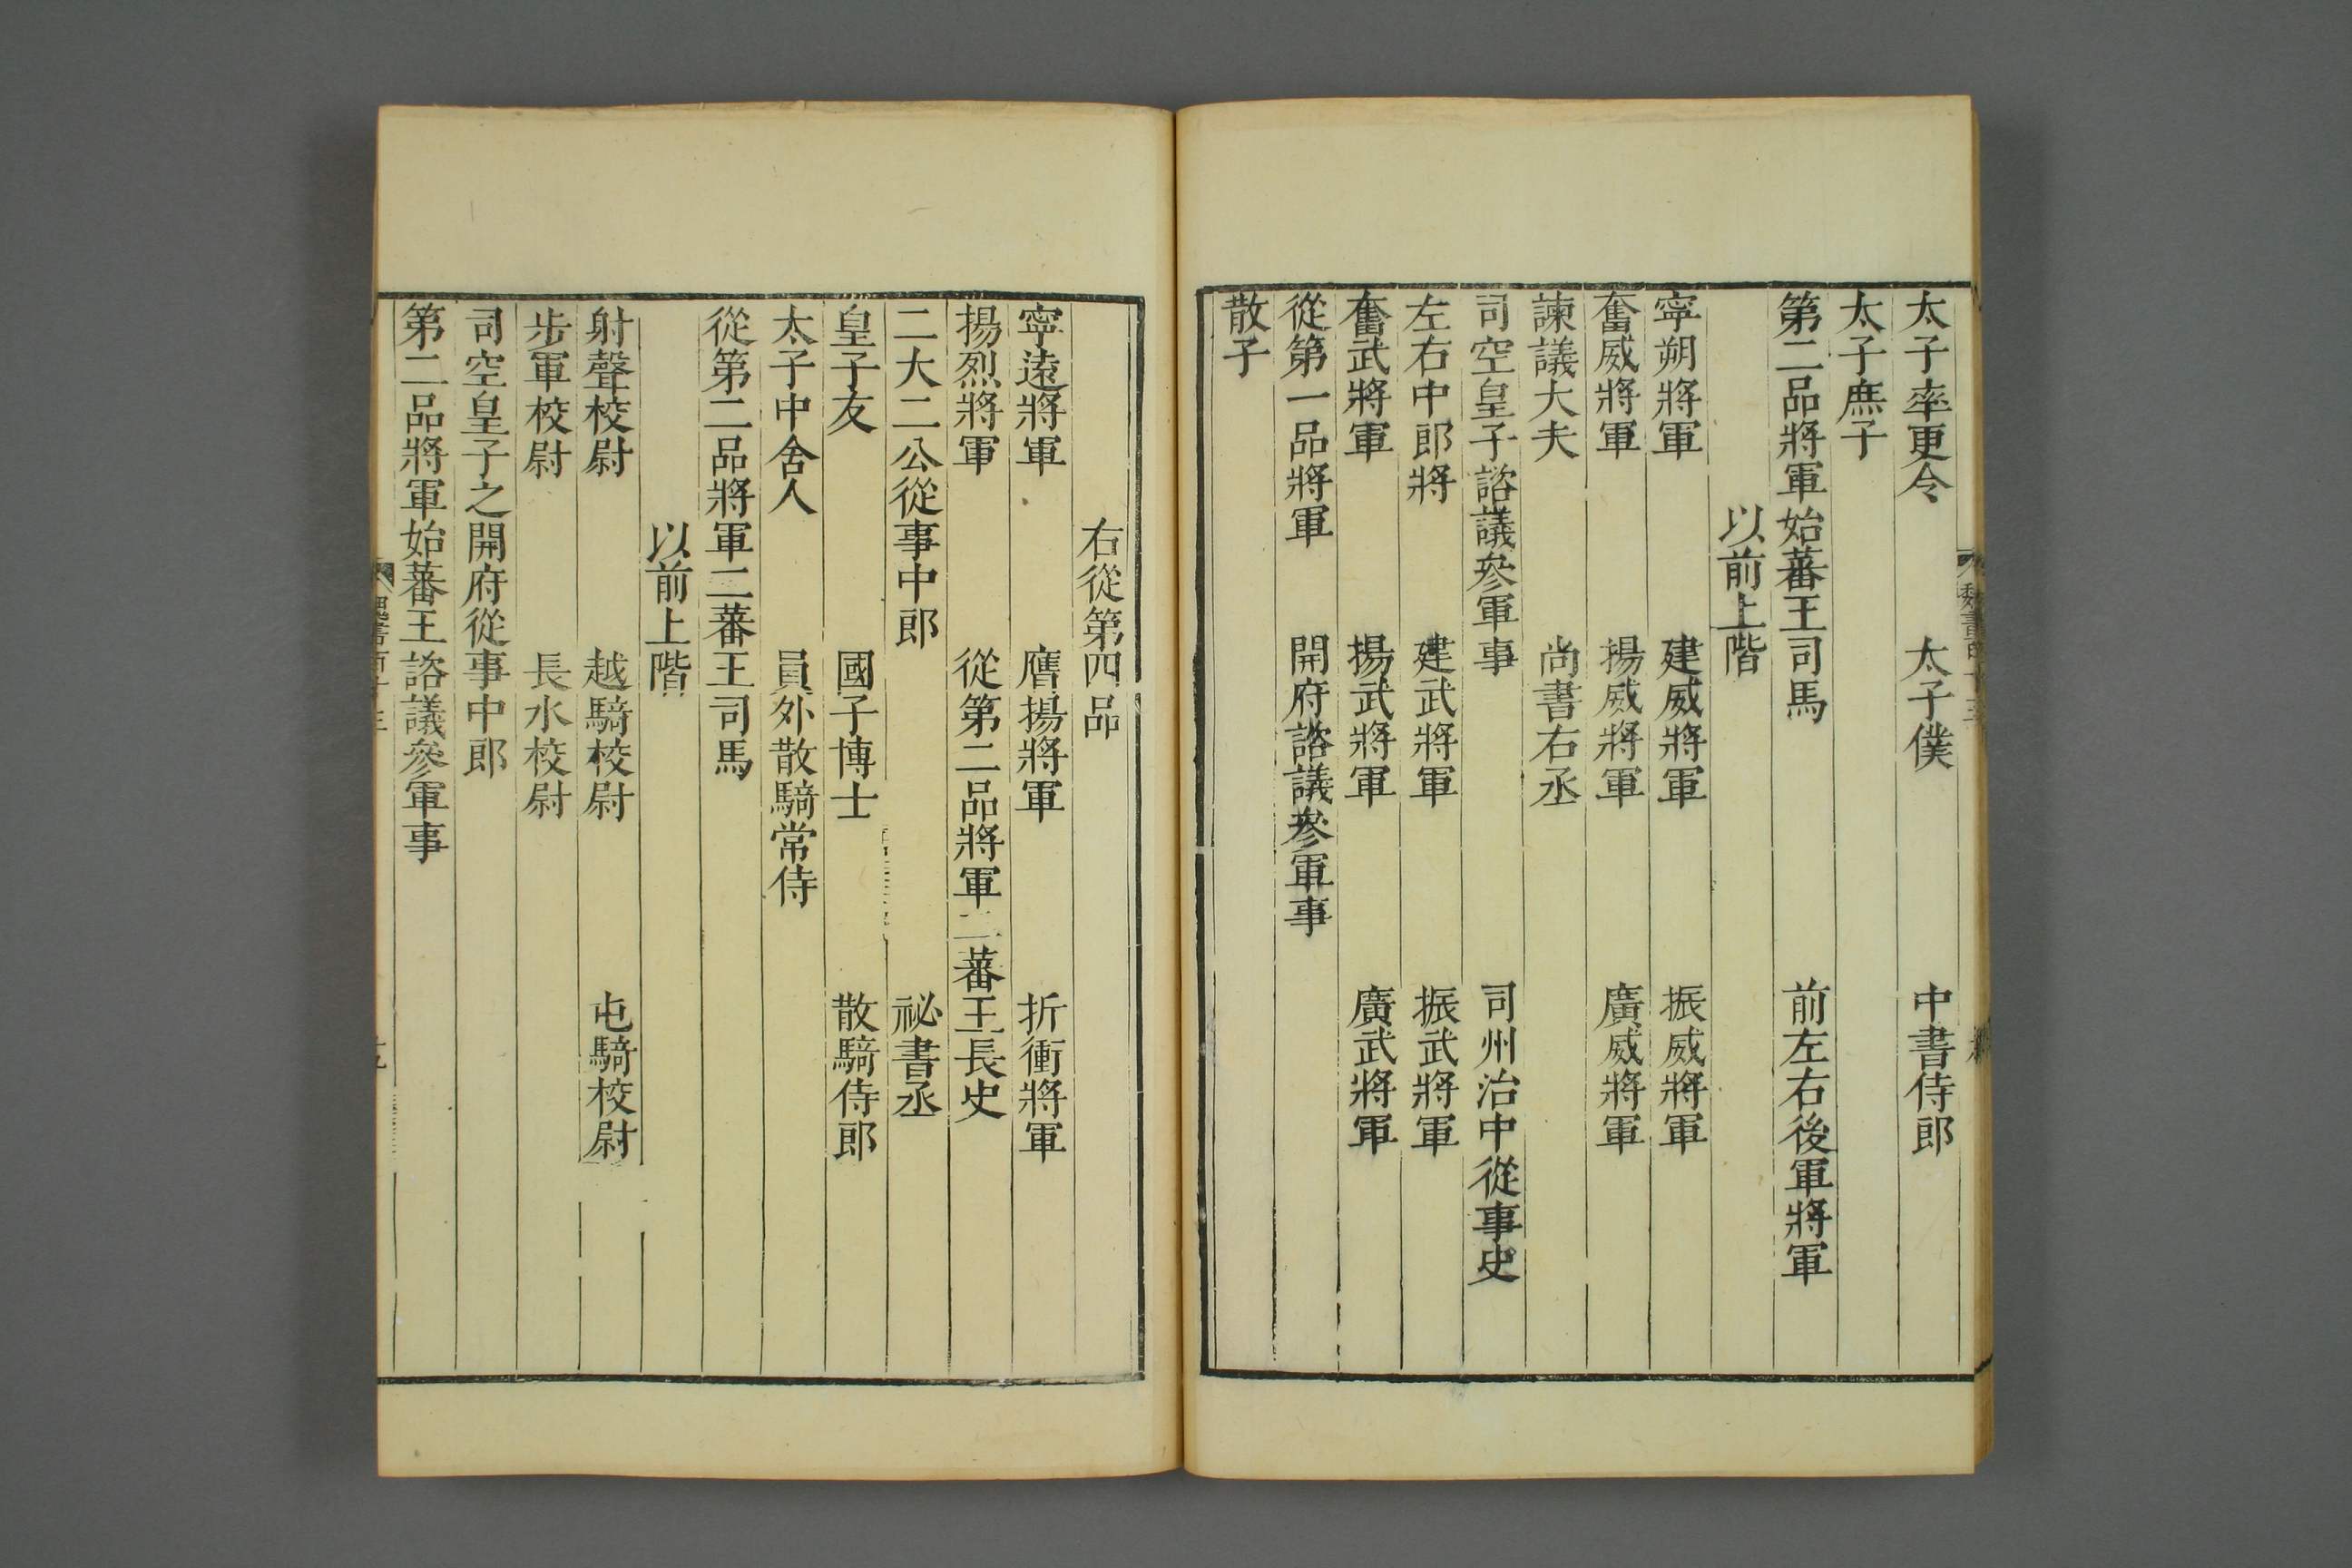 太子率更令　太子僕　中書侍郎
太子庶子
第二品將軍始蕃王司馬　前左右後軍將軍
以前上階
寧朔將軍　建威將軍　振威將軍
奮威將軍　揚威將軍　廣威將軍
諫議大夫　尚書右丞
司空皇子諮議參軍事　司州治中從事史
左右中郎將　建武將軍　振武將軍
奮武將軍　揚武將軍　廣武將軍
從第一品將軍　開府諮議參軍事
散子
右從第四品
寧遠將軍　鷹揚將軍　折衝將軍
揚烈將軍　從第二品將軍二蕃王長史
二大二公從事中郎　祕書丞
皇子友　國子博士　散騎侍郎
太子中舍人　員外散騎常侍
從第二品將軍二蕃王司馬
以前上階
射聲校尉　越騎校尉　屯騎校尉
步軍校尉　長水校尉
司空皇子之開府從事中郎
第二品將軍始蕃王諮議參軍事